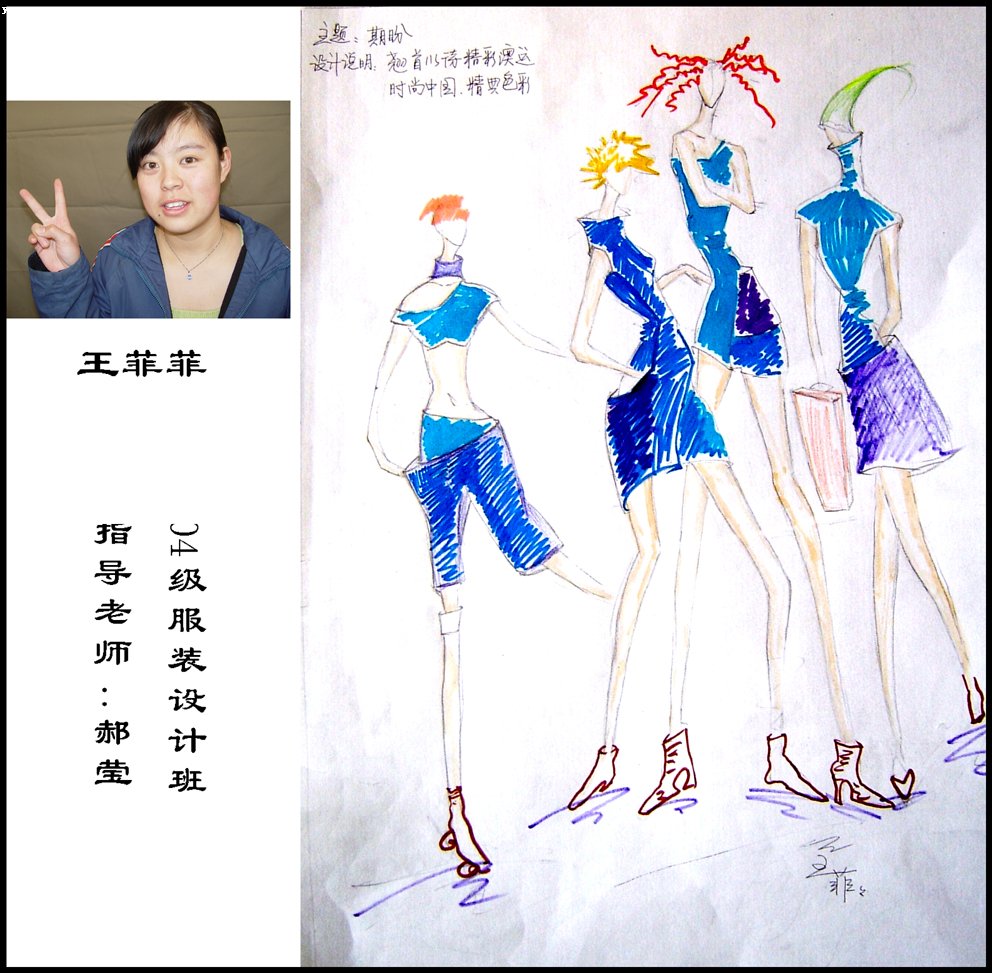 主题：期盼
设计说明：翘首以待精彩奥运
时尚中国.精典色彩
王菲菲
04级服装设计班
指导老师：郝莹
王菲